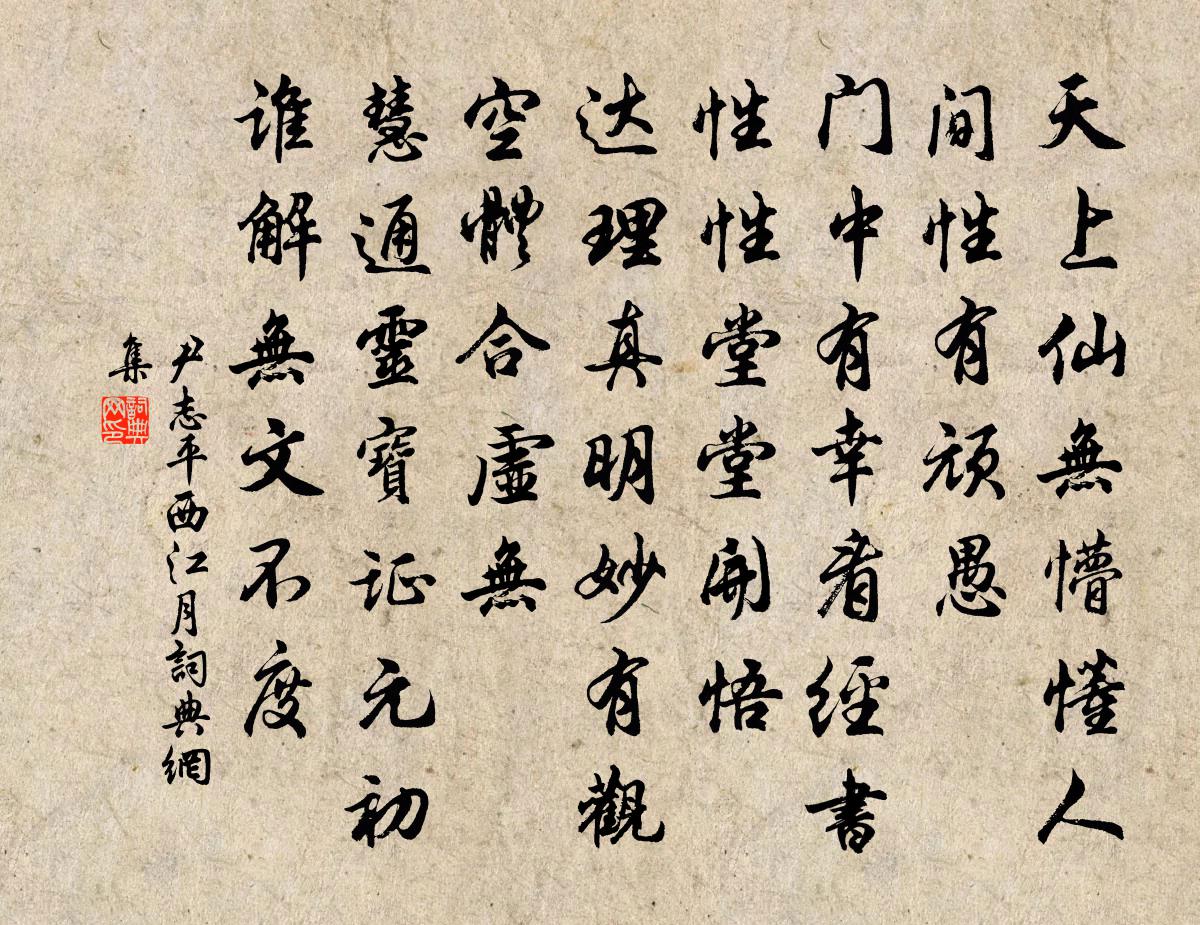 天上仙無懵懂人
间性有顽愚
门中有幸看經書
性性堂堂開悟
达理真明妙有觀
空體合虛無
慧通靈寶证元初
谁解無文不度
尹志平西江月詞典網
集
詞典
网印